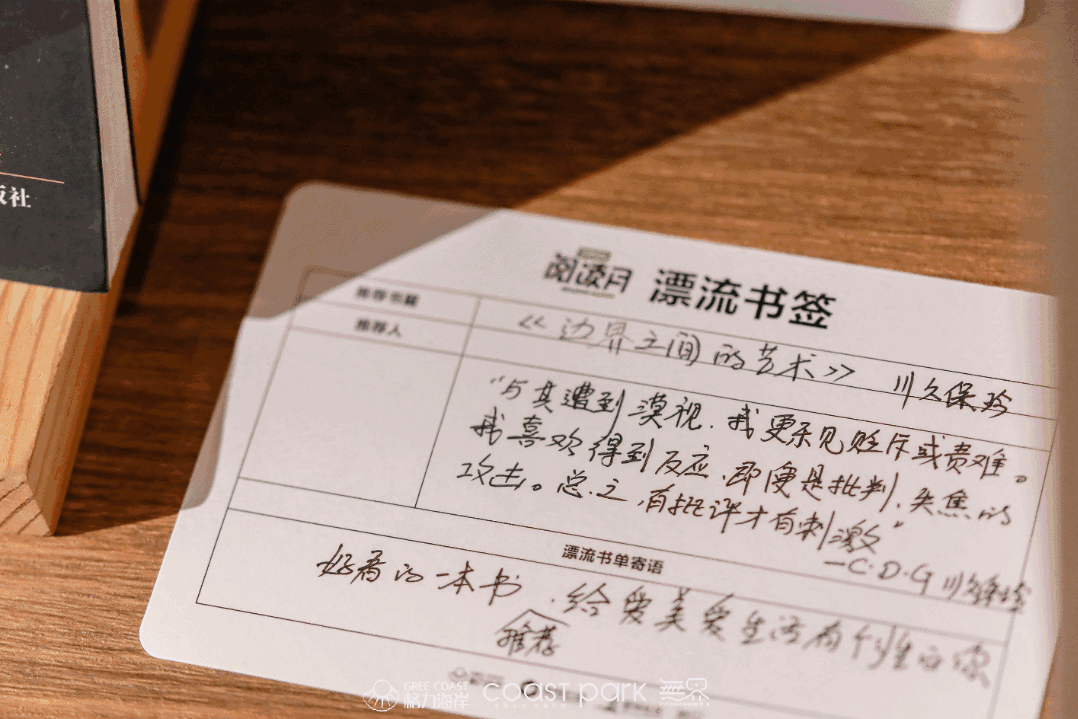 版社
阅读月 漂流书签
推荐书籍 《边界之间的艺术》 川久保玲
推荐人
“与其遭到漠视，我更乐见贬斥或责难。
我喜欢得到反应，即便是批判、失焦的
攻击。总之，有批评才有刺激”
—C·D·G 川久保玲
漂流书单寄语
好看的一本书，给爱美爱生活有个性的你
推荐
GREE COAST
格力海岸 coast park 無界